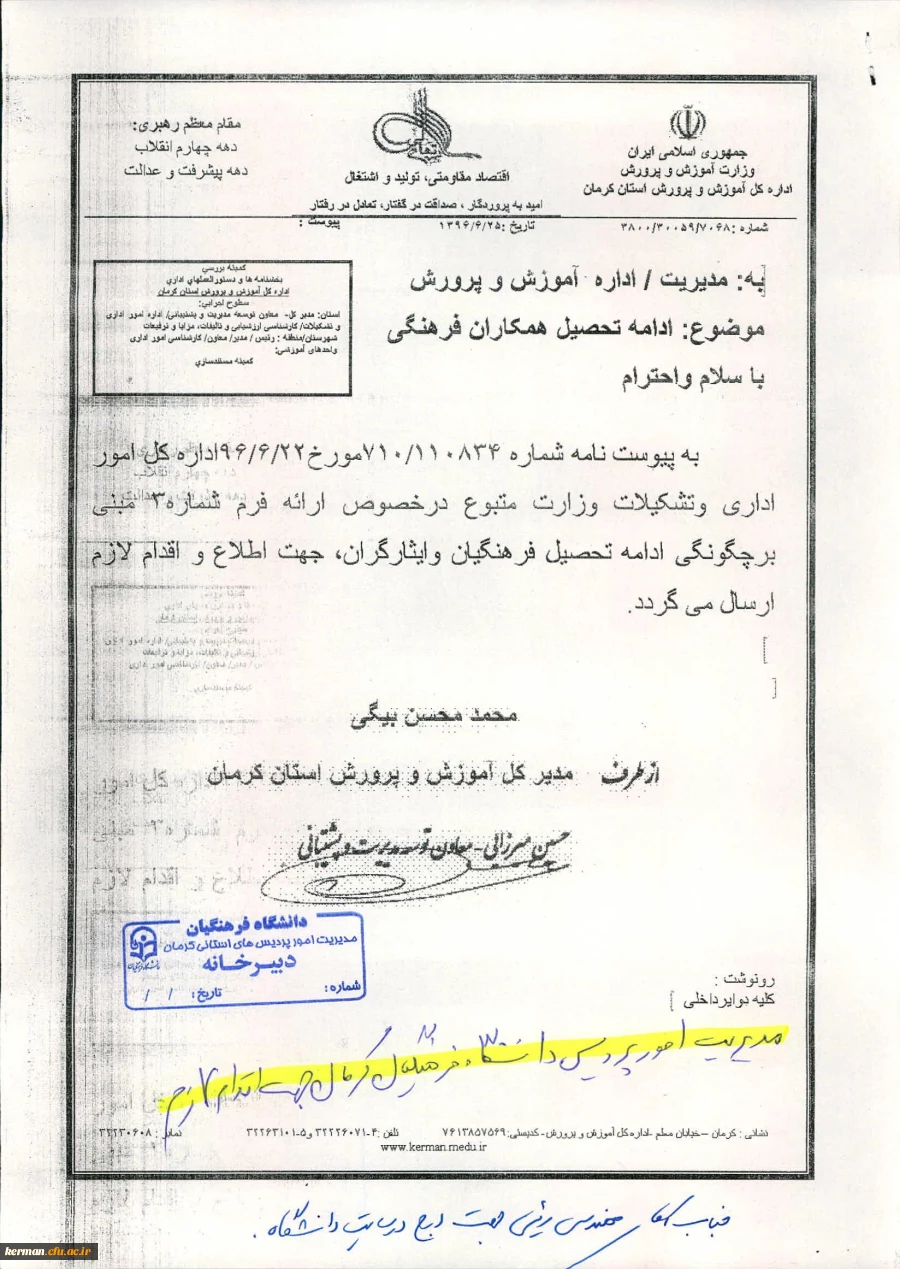 جمهوری اسلامی ایران
وزارت آموزش و پرورش
اداره کل آموزش و پرورش استان کرمان
اقتصاد مقاومتی، تولید و اشتغال
امید به پروردگار ، صداقت در گفتار، تعادل در رفتار
مقام معظم رهبری:
دهه چهارم انقلاب
دهه پیشرفت و عدالت
شماره :۳۸۰۰/۳۰۰۵۹/۷۰۶۸
تاریخ :۱۳۹۶/۶/۲۵
پیوست :
به: مدیریت / اداره آموزش و پرورش
موضوع: ادامه تحصیل همکاران فرهنگی
با سلام واحترام
کمیته بررسی
بخشنامه ها و دستورالعملهای اداری
اداره کل آموزش و پرورش استان کرمان
سطوح اجرایی:
استان: مدیر کل- معاون توسعه مدیریت و پشتیبانی/ اداره امور اداری
و تشکیلات/ کارشناسی ارزشیابی و تالیفات، مزایا و ترفیعات
شهرستان/منطقه : رئیس / مدیر/ معاون/ کارشناسی امور اداری
واحدهای آموزشی:
کمیته مستندسازی
به پیوست نامه شماره ۷۱۰/۱۱۰۸۳۴مورخ۹۶/۶/۲۲اداره کل امور
اداری وتشکیلات وزارت متبوع درخصوص ارائه فرم شماره۳ مبنی
برچگونگی ادامه تحصیل فرهنگیان وایثارگران، جهت اطلاع و اقدام لازم
ارسال می گردد.
محمد محسن بیگی
از طرف مدیر کل آموزش و پرورش استان کرمان
حسین میرزائی- معاون توسعه مدیریت و پشتیبانی
دانشگاه فرهنگیان
مدیریت امور پردیس های استانی کرمان
دبیرخانه
شماره:
تاریخ: / /
رونوشت :
کلیه دوایرداخلی
مدیریت امور پردیس دانشگاه فرهنگیان کرمان جهت اقدام لازم
نشانی : کرمان –خیابان معلم -اداره کل آموزش و پرورش- کدپستی:۷۶۱۳۸۵۷۵۶۹ تلفن :۴-۳۲۲۲۶۰۷۱ و۵-۳۲۲۶۳۱۰۱ نمابر : ۳۲۲۳۰۶۰۸
www.kerman.medu.ir
جناب آقای مهندس رئیسی جهت درج در سایت دانشگاه.
kerman.cfu.ac.ir